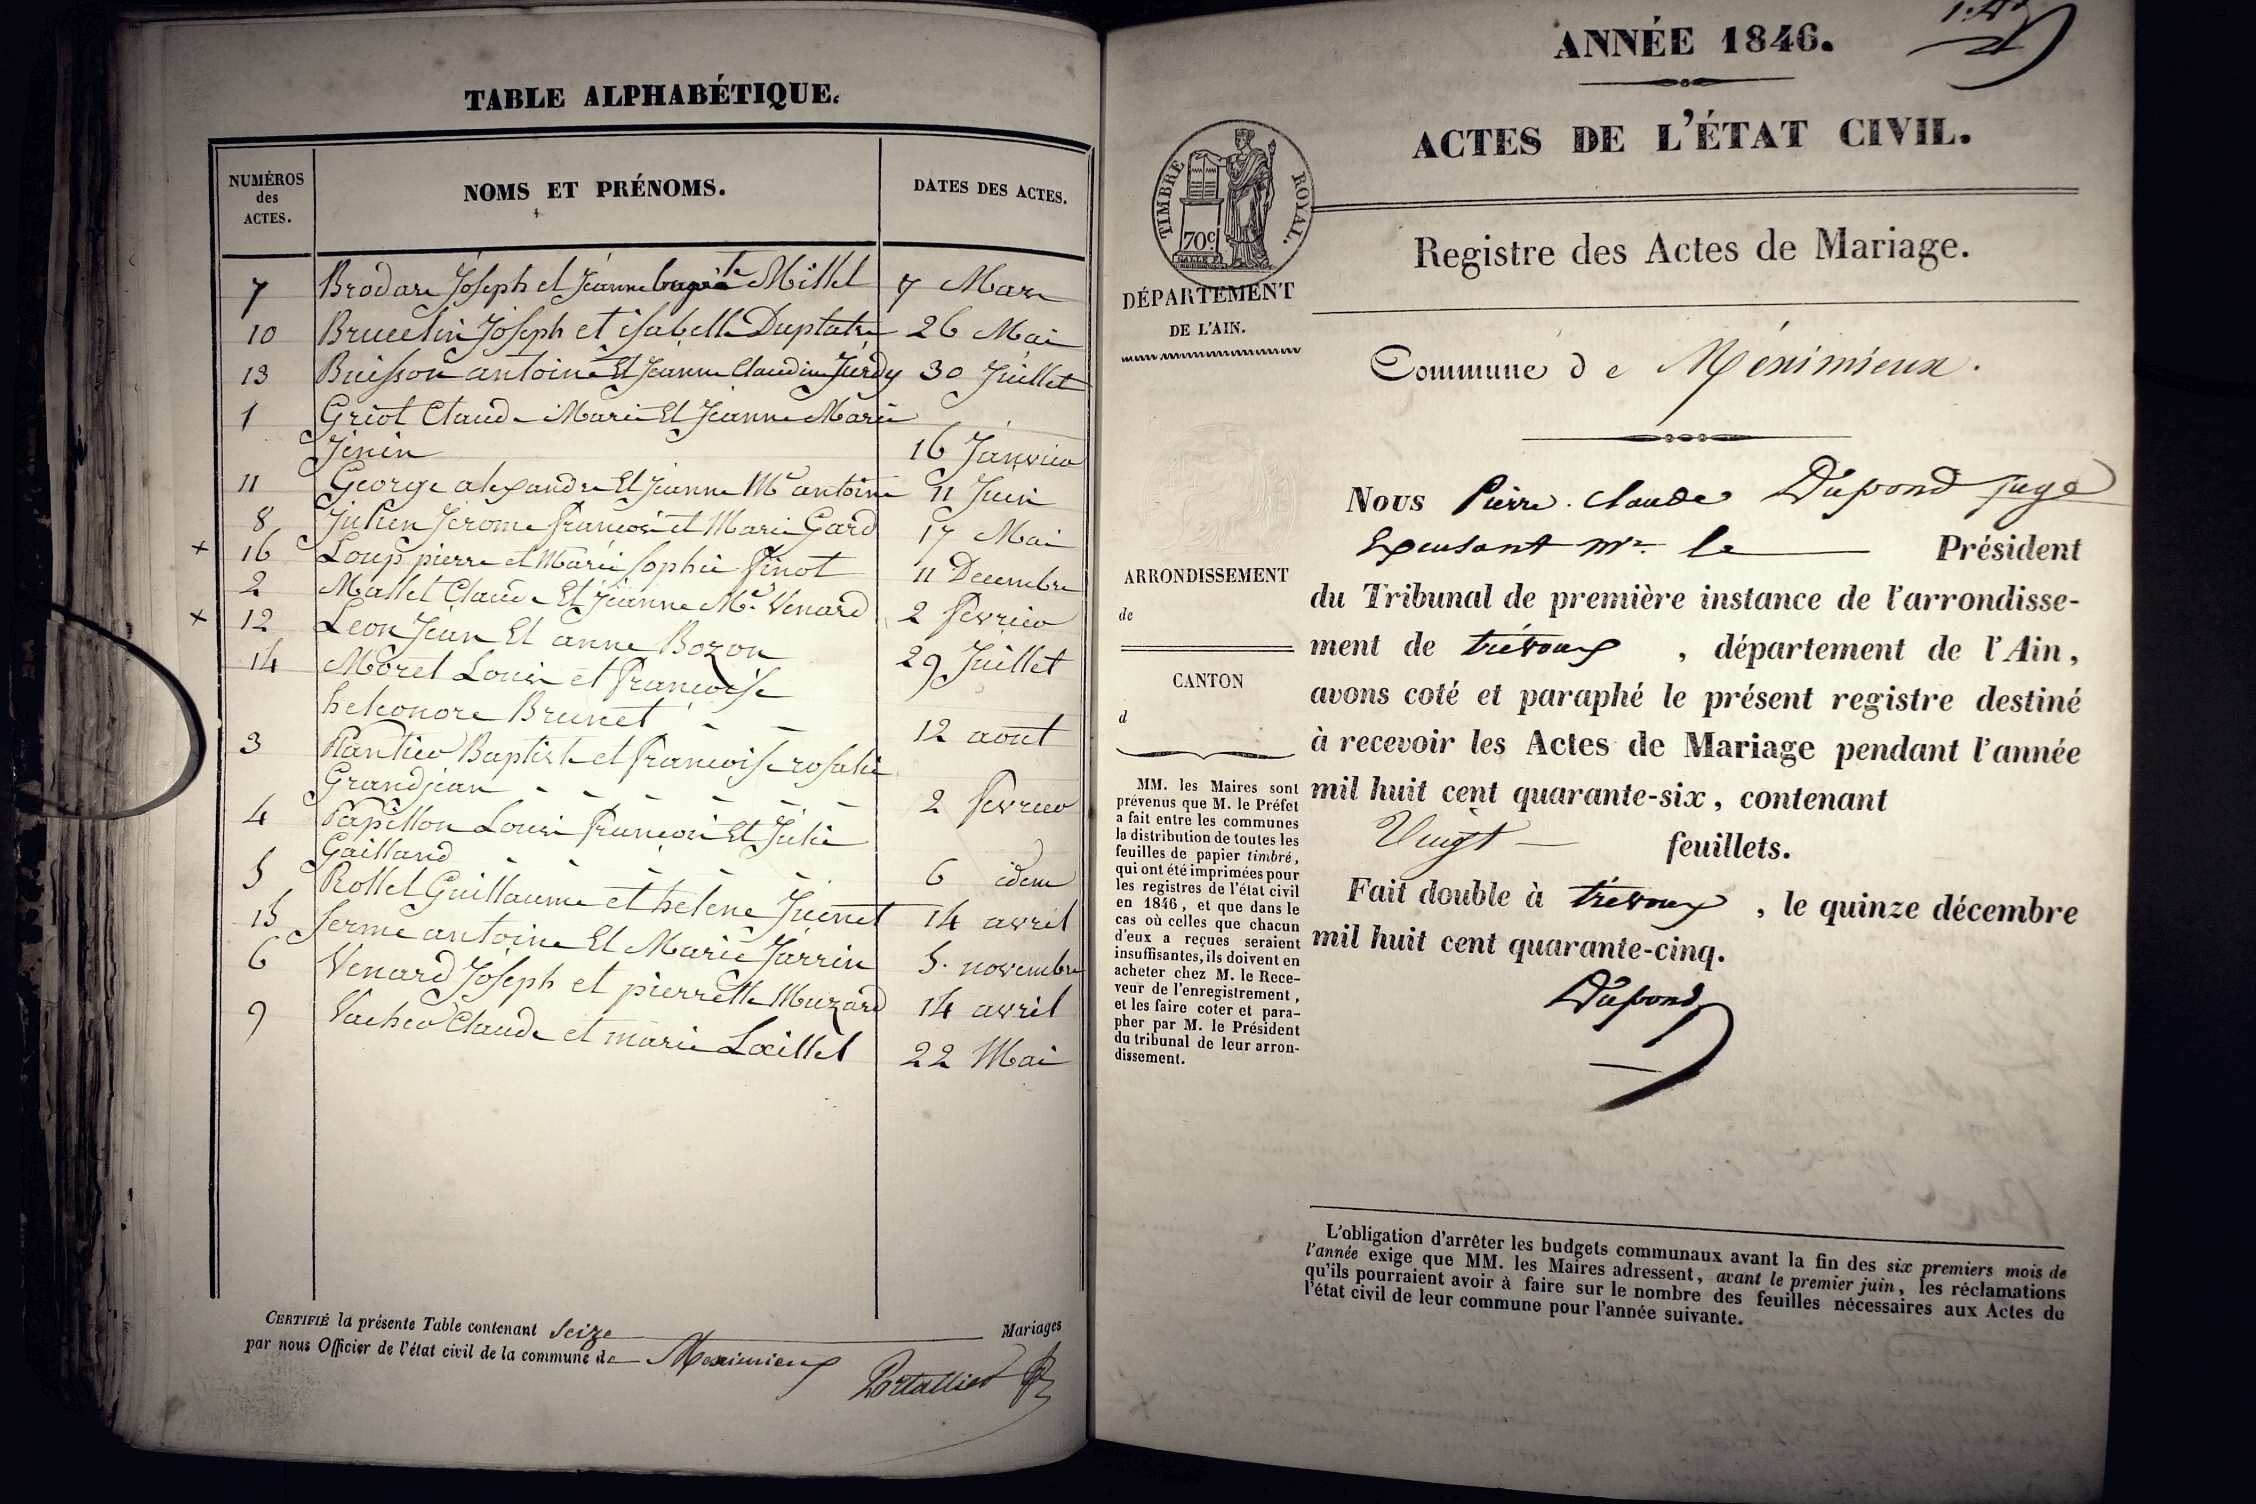 TABLE ALPHABÉTIQUE.
NUMÉROS
des
ACTES.
NOMS ET PRÉNOMS.
DATES DES ACTES.
7 Brodare Joseph et Jeanne Millet 7 Mars
10 Joseph et isabelle 26 Mai
13 Buisson antoine Et Jeanne Claudine Jurdy 30 Juillet
1 Griot Claude Marie Et Jeanne Marie
Jenin 16 Janvier
11 George alexandre Et Jeanne Me antoine 11 Juin
8 Julien Jerome françois et Marie Gard 17 Mai
+ 16 Loup pierre et Marie sophie finot 11 Decembre
2 Mallet Claude Et Jeanne Me Venard 2 fevrier
+ 12 Leon Jean Et anne Bozon 29 Juillet
14 Moret Louis et françoise
heleonore Brunet 12 aout
3 Plantier Baptiste et françoise rosalie
Grandjean 2 fevrier
4 Papillon Louis françois Et Julie
Gailland 6 idem
5 Rollet Guillaume et helene Juenet 14 avril
15 serme antoine Et Marie Jarrin 5. novembre
6 Venard Joseph et pierrette Muzard 14 avril
9 Vacher Claude et marie Lœillet 22 Mai
CERTIFIÉ la présente Table contenant seize Mariages
par nous Officier de l'état civil de la commune de Meximieux
Portallier
ANNÉE 1846.
ACTES DE L'ÉTAT CIVIL.
TIMBRE ROYAL.
70c
Registre des Actes de Mariage.
DÉPARTEMENT
DE L'AIN.
Commune de Méximieux.
Nous Pierre. Claude Dupond juge
Expensant Mr. le Président
du Tribunal de première instance de l'arrondisse-
ment de trévoux, département de l'Ain,
avons coté et paraphé le présent registre destiné
à recevoir les Actes de Mariage pendant l'année
mil huit cent quarante-six, contenant
Vingt feuillets.
Fait double à trévoux, le quinze décembre
mil huit cent quarante-cinq.
Dupond
ARRONDISSEMENT
de
CANTON
d
MM. les Maires sont
prévenus que M. le Préfet
a fait entre les communes
la distribution de toutes les
feuilles de papier timbré,
qui ont été imprimées pour
les registres de l'état civil
en 1846, et que dans le
cas où celles que chacun
d'eux a reçues seraient
insuffisantes, ils doivent en
acheter chez M. le Rece-
veur de l'enregistrement,
et les faire coter et para-
pher par M. le Président
du tribunal de leur arron-
dissement.
L'obligation d'arrêter les budgets communaux avant la fin des six premiers mois de
l'année exige que MM. les Maires adressent, avant le premier juin, les réclamations
qu'ils pourraient avoir à faire sur le nombre des feuilles nécessaires aux Actes de
l'état civil de leur commune pour l'année suivante.